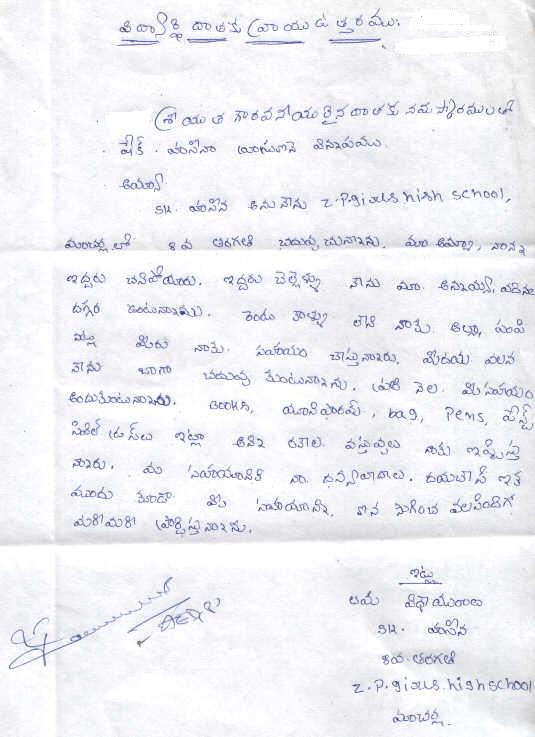 విద్యార్థి దాతకు వ్రాయు ఉత్తరము:
శ్రీయుత గౌరవనీయులైన దాతకు నమస్కారములతో
షేక్. హసీనా వ్రాయునది విన్నపము.
అయ్యా
SK. హసీన అను నేను Z.P.girls high school,
మంచర్ల లో 8వ తరగతి చదువు చున్నాను. మా అమ్మా, నాన్న
ఇద్దరు చనిపోయారు. ఇద్దరు చెల్లెళ్ళు నేను మా అన్నయ్య, వదిన
దగ్గర ఉంటున్నాము. రెండు కాళ్ళు లేని నాకు అల్లా, పంపి
నట్లు మీరు నాకు సహాయం చేస్తున్నారు. మీదయ వలన
నేను బాగా చదువు కుంటున్నాను. ప్రతి నెల మీ సహయం
అందుకుంటున్నాను. Books, యూనిఫారమ్, bag, Pens, పేస్ట్
సబ్బులు ఇట్లా అన్ని రకాల వస్తువులు నాకు ఇప్పిస్తు
న్నారు. మీ సహాయానికి నా ధన్యవాదాలు. దయచేసి ఇక
ముందు కూడా మీ సహాయాన్ని కొన సాగించ వలసిందిగా
మరీమరీ ప్రార్థిస్తున్నాను.
ఇట్లు
తమ విధేయురాలు
SK. హసీన
8వ.తరగతి
Z.P.girls.high school
మంచర్ల.